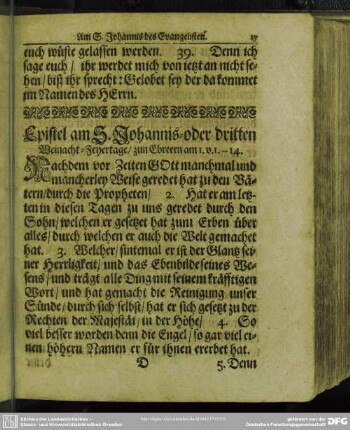 Am S. Johannis des Evangelisten. 17
euch wüste gelassen werden. 39. Denn ich
sage euch / ihr werdet mich von ietzt an nicht se-
hen / biß ihr sprecht: Gelobet sey der da kommet
im Namen des HErrn.
Epistel am S. Johannis-oder dritten
Weinacht-Feyertage / zun Ebreern am 1. v. 1. – 14.
Nachdem vor Zeiten GOtt manchmal und
mancherley Weise geredet hat zu den Vä-
tern / durch die Propheten / 2. Hat er am letz-
ten in diesen Tagen zu uns geredet durch den
Sohn / welchen er gesetzet hat zum Erben über
alles / durch welchen er auch die Welt gemachet
hat. 3. Welcher / sintemal er ist der Glantz sei-
ner Herrligkeit / und das Ebenbild seines We-
sens / und trägt alle Ding mit seinem kräfftigen
Wort / und hat gemacht die Reinigung unser
Sünde / durch sich selbst / hat er sich gesetzt zu der
Rechten der Majestät / in der Höhe / 4. So
viel besser worden denn die Engel / so gar viel ei-
nen höhern Namen er für ihnen ererbet hat.
D 5. Denn